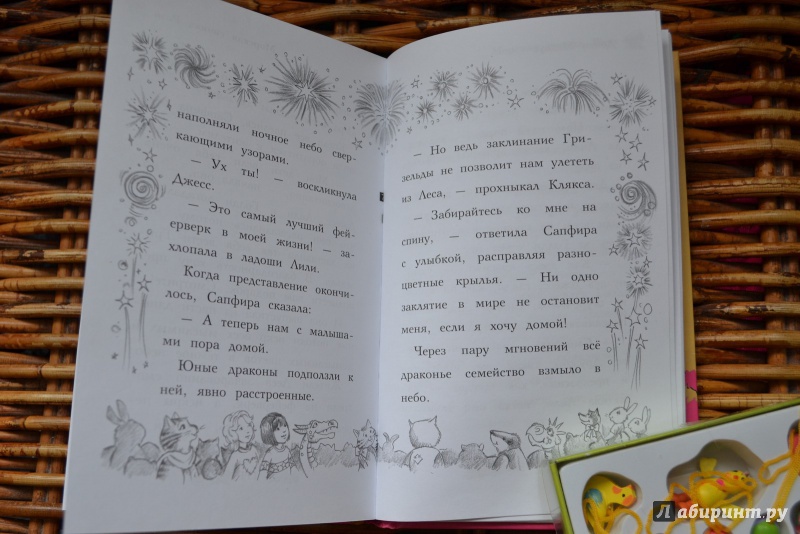 наполняли ночное небо свер-
кающими узорами.
— Ух ты! — воскликнула
Джесс.
— Это самый лучший фей-
ерверк в моей жизни! — за-
хлопала в ладоши Лили.
Когда представление окончи-
лось, Сапфира сказала:
— А теперь нам с малыша-
ми пора домой.
Юные драконы подползли к
ней, явно расстроенные.
— Но ведь заклинание Гри-
зельды не позволит нам улететь
из Леса, — прохныкал Клякса.
— Забирайтесь ко мне на
спину, — ответила Сапфира
с улыбкой, расправляя разно-
цветные крылья. — Ни одно
заклятие в мире не остановит
меня, если я хочу домой!
Через пару мгновений всё
драконье семейство взмыло в
небо.
Лабиринт.ру